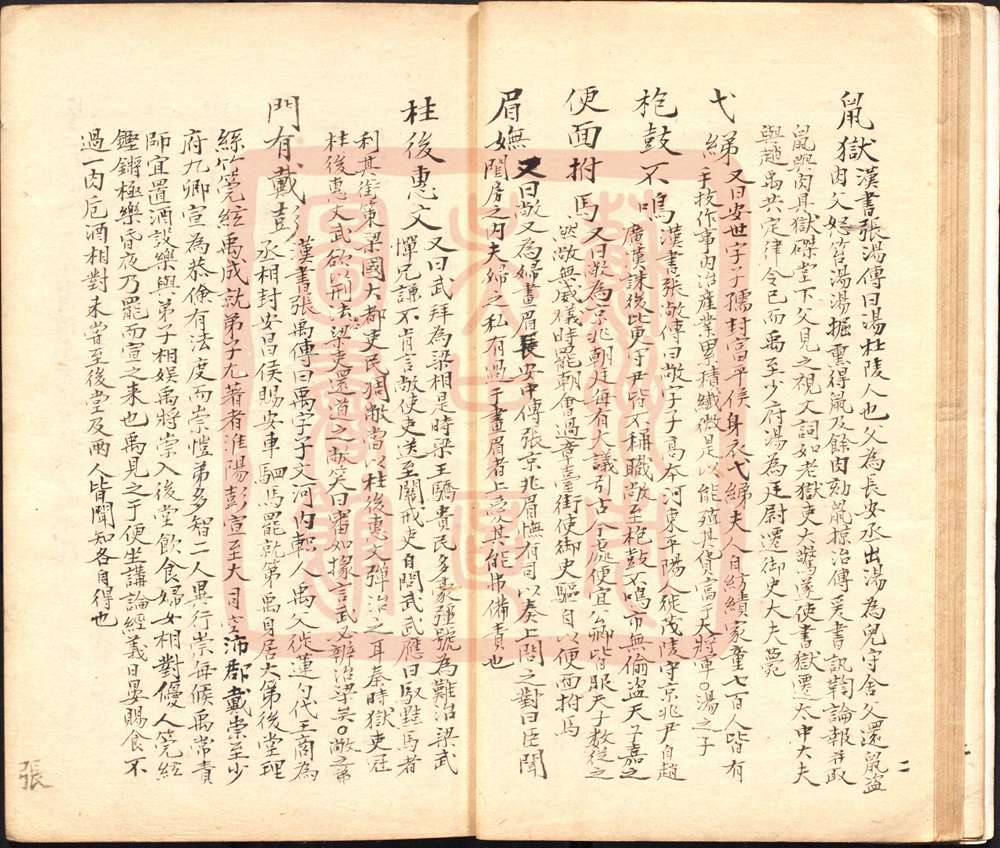 鼠獄漢書張湯傳曰湯杜陵人也父為長安丞出湯為兒守舍父還鼠盜
肉父怒笞湯湯掘熏得鼠及餘肉劾鼠掠治傳爰書訊鞫論報并取
鼠與肉具獄磔堂下父見之視文詞如老獄吏大驚遂使書獄遷太中大夫
與趙禹共定律令已而禹至少府湯為廷尉遷御史大夫薨
弋綈又曰安世字子孺封富平侯身衣弋綈夫人自紡績家童七百人皆有
手技作事內治產業累積纖微是以能殖其貨富于大將軍○湯之子
枹鼓不鳴漢書張敞傳曰敞字子高本河東平陽人徙茂陵守京兆尹自趙
廣漢誅後比更守尹皆不稱職敞至枹鼓不鳴市無偷盜天子嘉之
便面拊馬又曰敞為京兆朝廷每有大議引古今處便宜公卿皆服天子數從之
然敞無威儀時罷朝會過章臺街使御史驅自以便面拊馬
眉嫵又曰敞又為婦畫眉長安中傳張京兆眉憮有司以奏上問之對曰臣聞
閨房之內夫婦之私有過于畫眉者上愛其能弗備責也
柱後惠文又曰武拜為梁相是時梁王驕貴民多豪彊號為難治梁武
憚兄謙不肯言敞使吏送至關戒吏自問武武應曰馭黠馬者
利其銜策梁國大都吏民獨敞當以柱後惠文彈治之耳秦時獄吏冠
柱後惠文武欲以刑法梁吏還道之敞笑曰審如掾言武必辦治梁矣○敞之弟
門有戴彭漢書張禹傳曰禹字子文河內軹人禹父徙蓮勺代王商為
丞相封安昌侯賜安車駟馬罷就第禹身居大第後堂理
絲竹筦絃禹成就弟子尤著者淮陽彭宣至大司空沛郡戴崇至少
府九卿宣為恭儉有法度而崇愷弟多智二人異行崇每候禹常責
師宜置酒設樂與弟子相娛禹將崇入後堂飲食婦女相對優人筦絃
鏗鏘極樂昏夜乃罷而宣之來也禹見之于便坐講論經義日晏賜食不
過一肉卮酒相對未嘗至後堂及兩人皆聞知各自得也
二
張